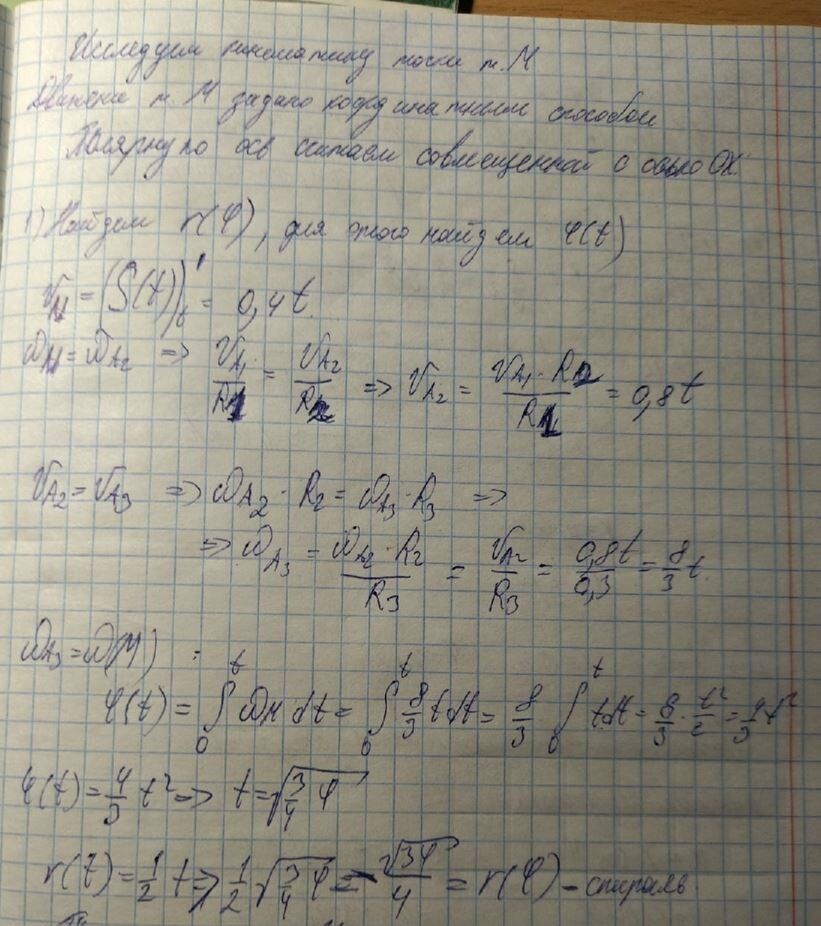 Исследуем кинематику точки т. М
Движение т. М задано координатным способом
Полярную ось считаем совмещенной с осью OX.
1) Найдем r(φ), для этого найдем φ(t)
V_M = (S(t))'_t = 0,4t.
ω_M = ω_A₂ => V_A₁/R₁ = V_A₂/R₂ => V_A₂ = V_A₁·R₂/R₁ = 0,8t
V_A₂ = V_A₃ => ω_A₂·R₂ = ω_A₃·R₃ =>
=> ω_A₃ = ω_A₂·R₂/R₃ = V_A₂/R₃ = 0,8t/0,3 = 8/3 t.
ω_A₃ = ω(M) :
φ(t) = ∫₀ᵗ ω_M dt = ∫₀ᵗ 8/3 t dt = 8/3 ∫₀ᵗ t dt = 8/3 · t²/2 = 4/3 t²
φ(t) = 4/3 t² => t = √(3/4 φ)
r(t) = 1/2 t => 1/2 √(3/4 φ) = √(3φ)/4 = r(φ) – спираль.